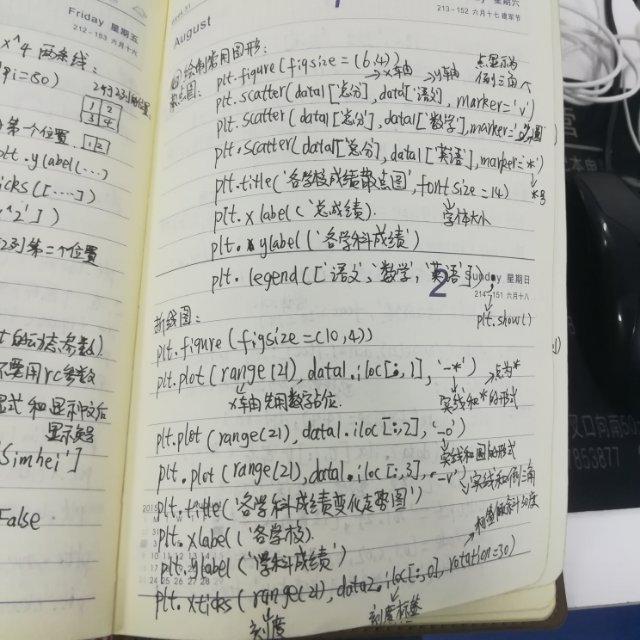 Friday 星期五
212-153 六月十六
x^4 两条线:
dpi=80)
2行2列的位置
1 2
3 4
第一个位置
plt.ylabel(...)
ticks([....])
^2'])
2列第二个位置
的动态参数)
不要用rc参数
显示中文后
显示负号
'Simhei']
False
August
213-152 六月十七 建军节
绘制常用图形:
散点图:
plt.figure(figsize=(6,4))
→x轴 →y轴
点显示为
倒三角
plt.scatter(data1['总分'],data1['语文'],marker='v')
plt.scatter(data1['总分'],data1['数学'],marker='o')
圆
plt.scatter(data1['总分'],data1['英语'],marker='*')
*号
plt.title('各学校成绩散点图',fontsize=14)
字体大小
plt.xlabel('总成绩').
plt.ylabel('各学科成绩')
plt.legend(['语文','数学','英语']);
plt.show()
2 Sunday 星期日
214-151 六月十八
折线图:
plt.figure(figsize=(10,4))
plt.plot(range(21),data1.iloc[:,1],'-*')
→点为*
x轴常用数字占位.
实线和*的形式
plt.plot(range(21),data1.iloc[:,2],'-o')
实线和圆的形式
plt.plot(range(21),data1.iloc[:,3],'-v')
实线和倒三角
plt.title('各学科成绩变化走势图')
plt.xlabel('各学校').
plt.ylabel('学科成绩')
plt.xticks(range(21),data2.iloc[:,0],rotation=30)
刻度
刻度标签
7853877